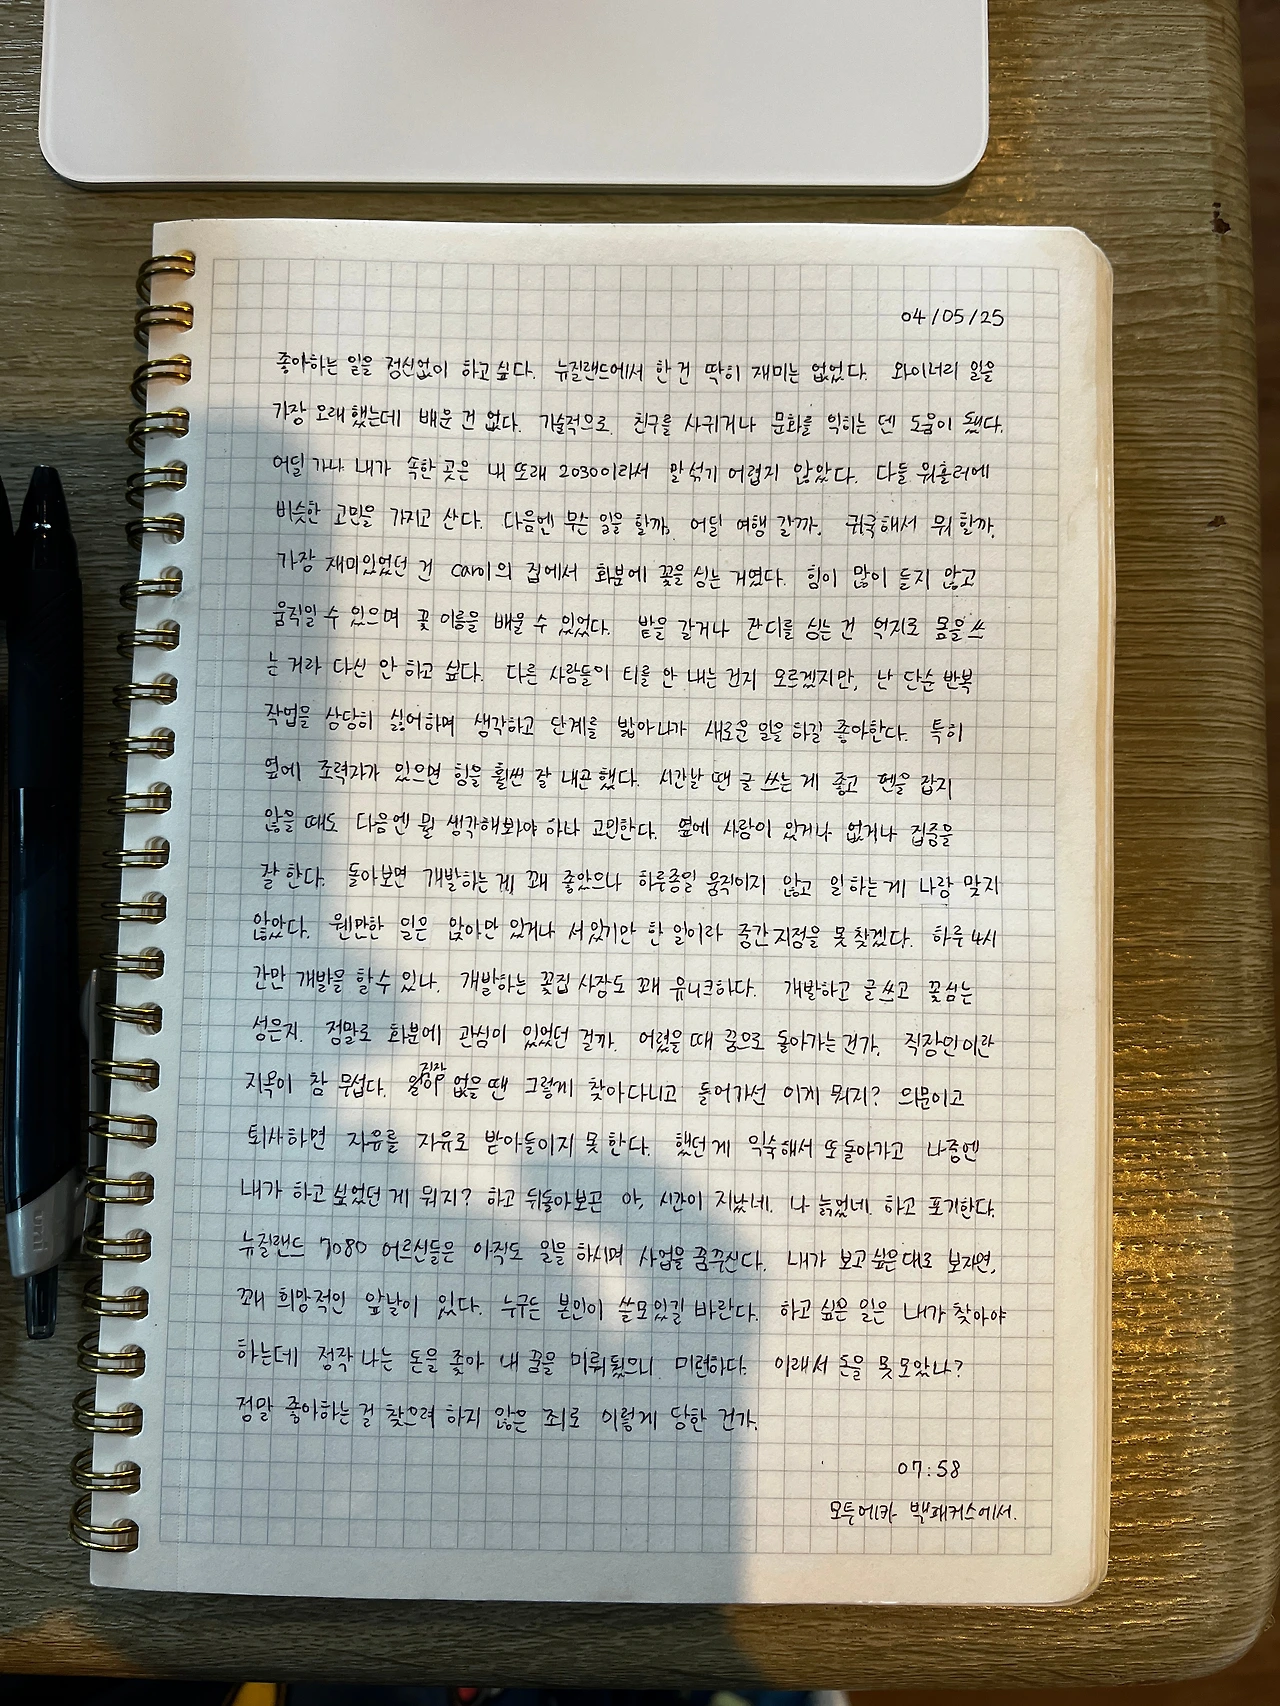 04/05/25
좋아하는 일을 정신없이 하고 싶다. 뉴질랜드에서 한 건 딱히 재미는 없었다. 와이너리 일을
가장 오래 했는데 배운 건 없다. 기술적으로. 친구를 사귀거나 문화를 익히는 덴 도움이 됐다.
어딜 가나 내가 속한 곳은 내 또래 2030이라서 말 섞기 어렵지 않았다. 다들 워홀러에
비슷한 고민을 가지고 산다. 다음엔 무슨 일을 할까, 어딜 여행 갈까, 귀국해서 뭐 할까.
가장 재미있었던 건 carol의 집에서 화분에 꽃을 심는 거였다. 힘이 많이 들지 않고
움직일 수 있으며 꽃 이름을 배울 수 있었다. 밭을 갈거나 잔디를 심는 건 억지로 몸을 쓰
는 거라 다신 안 하고 싶다. 다른 사람들이 티를 안 내는 건지 모르겠지만, 난 단순 반복
작업을 상당히 싫어하며 생각하고 단계를 밟아나가 새로운 일을 하길 좋아한다. 특히
옆에 조력자가 있으면 힘을 훨씬 잘 내곤 했다. 시간날 땐 글 쓰는 게 좋고 펜을 잡지
않을 때도 다음엔 뭘 생각해봐야 하나 고민한다. 옆에 사람이 있거나 없거나 집중을
잘 한다. 돌아보면 개발하는 게 꽤 좋았으나 하루종일 움직이지 않고 일하는 게 나랑 맞지
않았다. 웬만한 일은 앉아만 있거나 서 있기만 한 일이라 중간지점을 못 찾겠다. 하루 4시
간만 개발을 할 수 있나. 개발하는 꽃집 사장도 꽤 유니크하다. 개발하고 글쓰고 꽃심는
성은지. 정말로 화분에 관심이 있었던 걸까. 어렸을 때 꿈으로 돌아가는 건가. 직장인이란
지옥이 참 무섭다. 직장이 없을 땐 그렇게 찾아다니고 들어가선 이게 뭐지? 의문이고
퇴사하면 자유를 자유로 받아들이지 못 한다. 했던 게 익숙해서 또 돌아가고 나중엔
내가 하고 싶었던 게 뭐지? 하고 뒤돌아보곤 아, 시간이 지났네. 나 늙었네. 하고 포기한다.
뉴질랜드 7080 어르신들은 아직도 일을 하시며 사업을 꿈꾸신다. 내가 보고 싶은 대로 보자면,
꽤 희망적인 앞날이 있다. 누구든 본인이 쓸모있길 바란다. 하고 싶은 일은 내가 찾아야
하는데 정작 나는 돈을 좇아 내 꿈을 미뤄뒀으니 미련하다. 이래서 돈을 못 모았나?
정말 좋아하는 걸 찾으려 하지 않은 죄로 이렇게 당한 건가.
07:58
모투에카 백패커스에서.